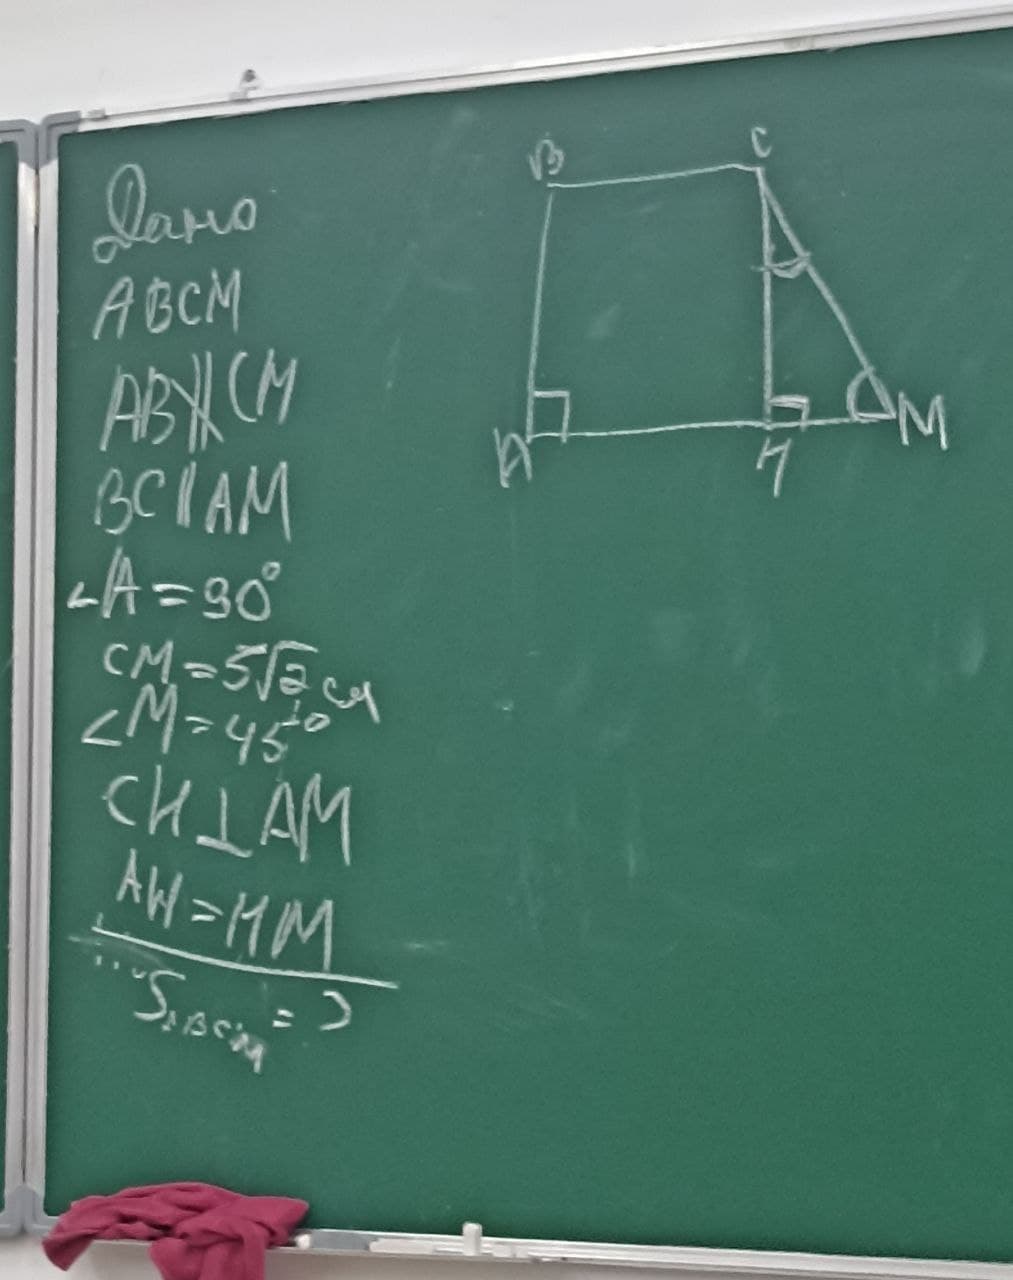 Дано
ABCM
AB∦CM
BC∥AM
∠A=90°
CM=5√2 см
∠M=45°
CH⊥AM
AH=HM
S ABCM = ?
B
C
A
H
M